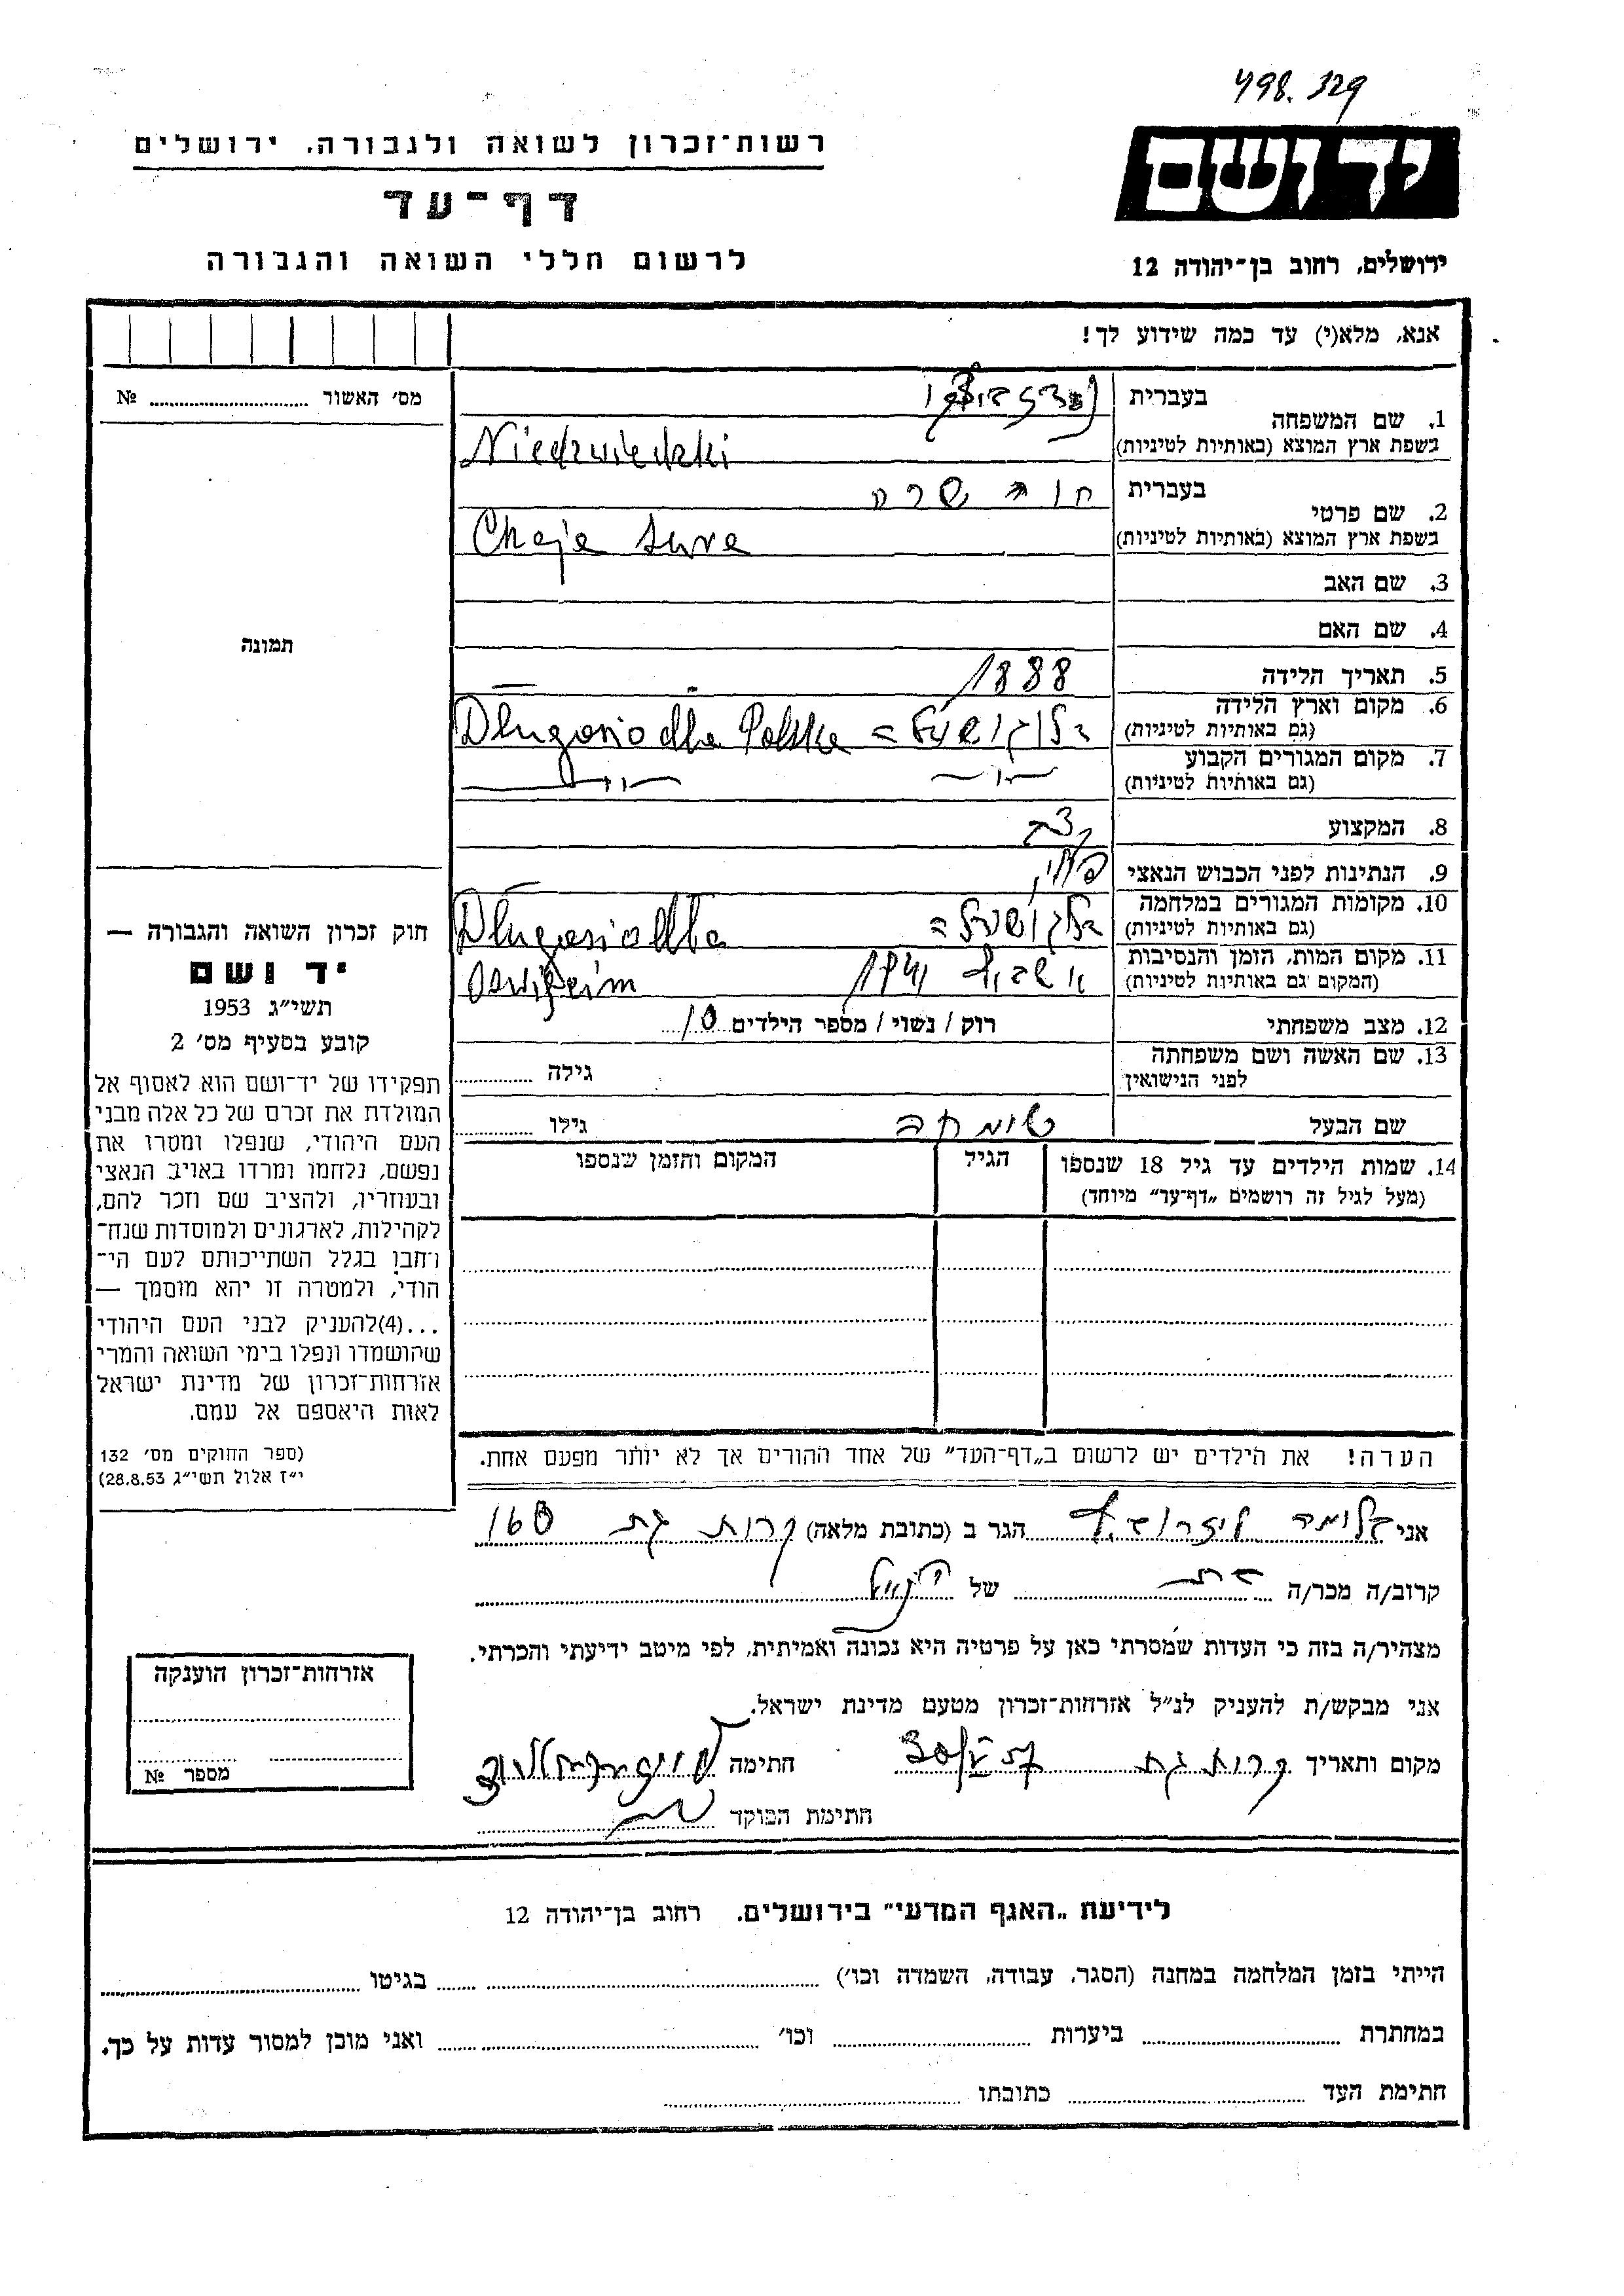 498.329
יד ושם
ירושלים, רחוב בן־יהודה 12
רשות־זכרון לשואה ולגבורה. ירושלים
דף־עד
לרשום חללי השואה והגבורה
אנא, מלא(י) עד כמה שידוע לך!
מס׳ האשור № 
1. שם המשפחה
בעברית
בשפת ארץ המוצא (באותיות לטיניות) Niedzwiedzki
2. שם פרטי
בעברית חיה שרה
בשפת ארץ המוצא (באותיות לטיניות) Chaje Sure
3. שם האב
4. שם האם
5. תאריך הלידה 1888
6. מקום וארץ הלידה
(גם באותיות לטיניות) Polska =
7. מקום המגורים הקבוע
(גם באותיות לטיניות)
8. המקצוע
9. הנתינות לפני הכבוש הנאצי
10. מקומות המגורים במלחמה
(גם באותיות לטיניות)
11. מקום המות, הזמן והנסיבות
(המקום גם באותיות לטיניות)
12. מצב משפחתי רוק / נשוי / מספר הילדים 10
13. שם האשה ושם משפחתה
לפני הנישואין
גילה
שם הבעל שמחה גילו
14. שמות הילדים עד גיל 18 שנספו
(מעל לגיל זה רושמים „דף־עד״ מיוחד)
הגיל
המקום והזמן שנספו
הערה! את הילדים יש לרשום ב„דף־העד״ של אחד ההורים אך לא יותר מפעם אחת.
תמונה
חוק זכרון השואה והגבורה —
יד ושם
תשי״ג 1953
קובע בסעיף מס׳ 2
תפקידו של יד־ושם הוא לאסוף אל
המולדת את זכרם של כל אלה מבני
העם היהודי, שנפלו ומסרו את
נפשם, נלחמו ומרדו באויב הנאצי
ובעוזריו, ולהציב שם וזכר להם,
לקהילות, לארגונים ולמוסדות שנח־
רחבו בגלל השתייכותם לעם הי־
הודי, ולמטרה זו יהא מוסמך —
...(4)להעניק לבני העם היהודי
שהושמדו ונפלו בימי השואה והמרי
אזרחות־זכרון של מדינת ישראל
לאות היאספם אל עמם.
(ספר החוקים מס׳ 132
י״ז אלול תשי״ג 28.8.53)
אני הגר ב (כתובת מלאה) קרית גת 160
קרוב/ה מכר/ה של
מצהיר/ה בזה כי העדות שמסרתי כאן על פרטיה היא נכונה ואמיתית, לפי מיטב ידיעתי והכרתי.
אני מבקש/ת להעניק לנ״ל אזרחות־זכרון מטעם מדינת ישראל.
מקום ותאריך קרית גת חתימה
חתימת הפוקד
אזרחות־זכרון הוענקה
מספר №
לידיעת „האגף המדעי״ בירושלים. רחוב בן־יהודה 12
הייתי בזמן המלחמה במחנה (הסגר, עבודה, השמדה וכו׳) בגיטו
במחתרת ביערות וכו׳ ואני מוכן למסור עדות על כך.
חתימת העד כתובתו